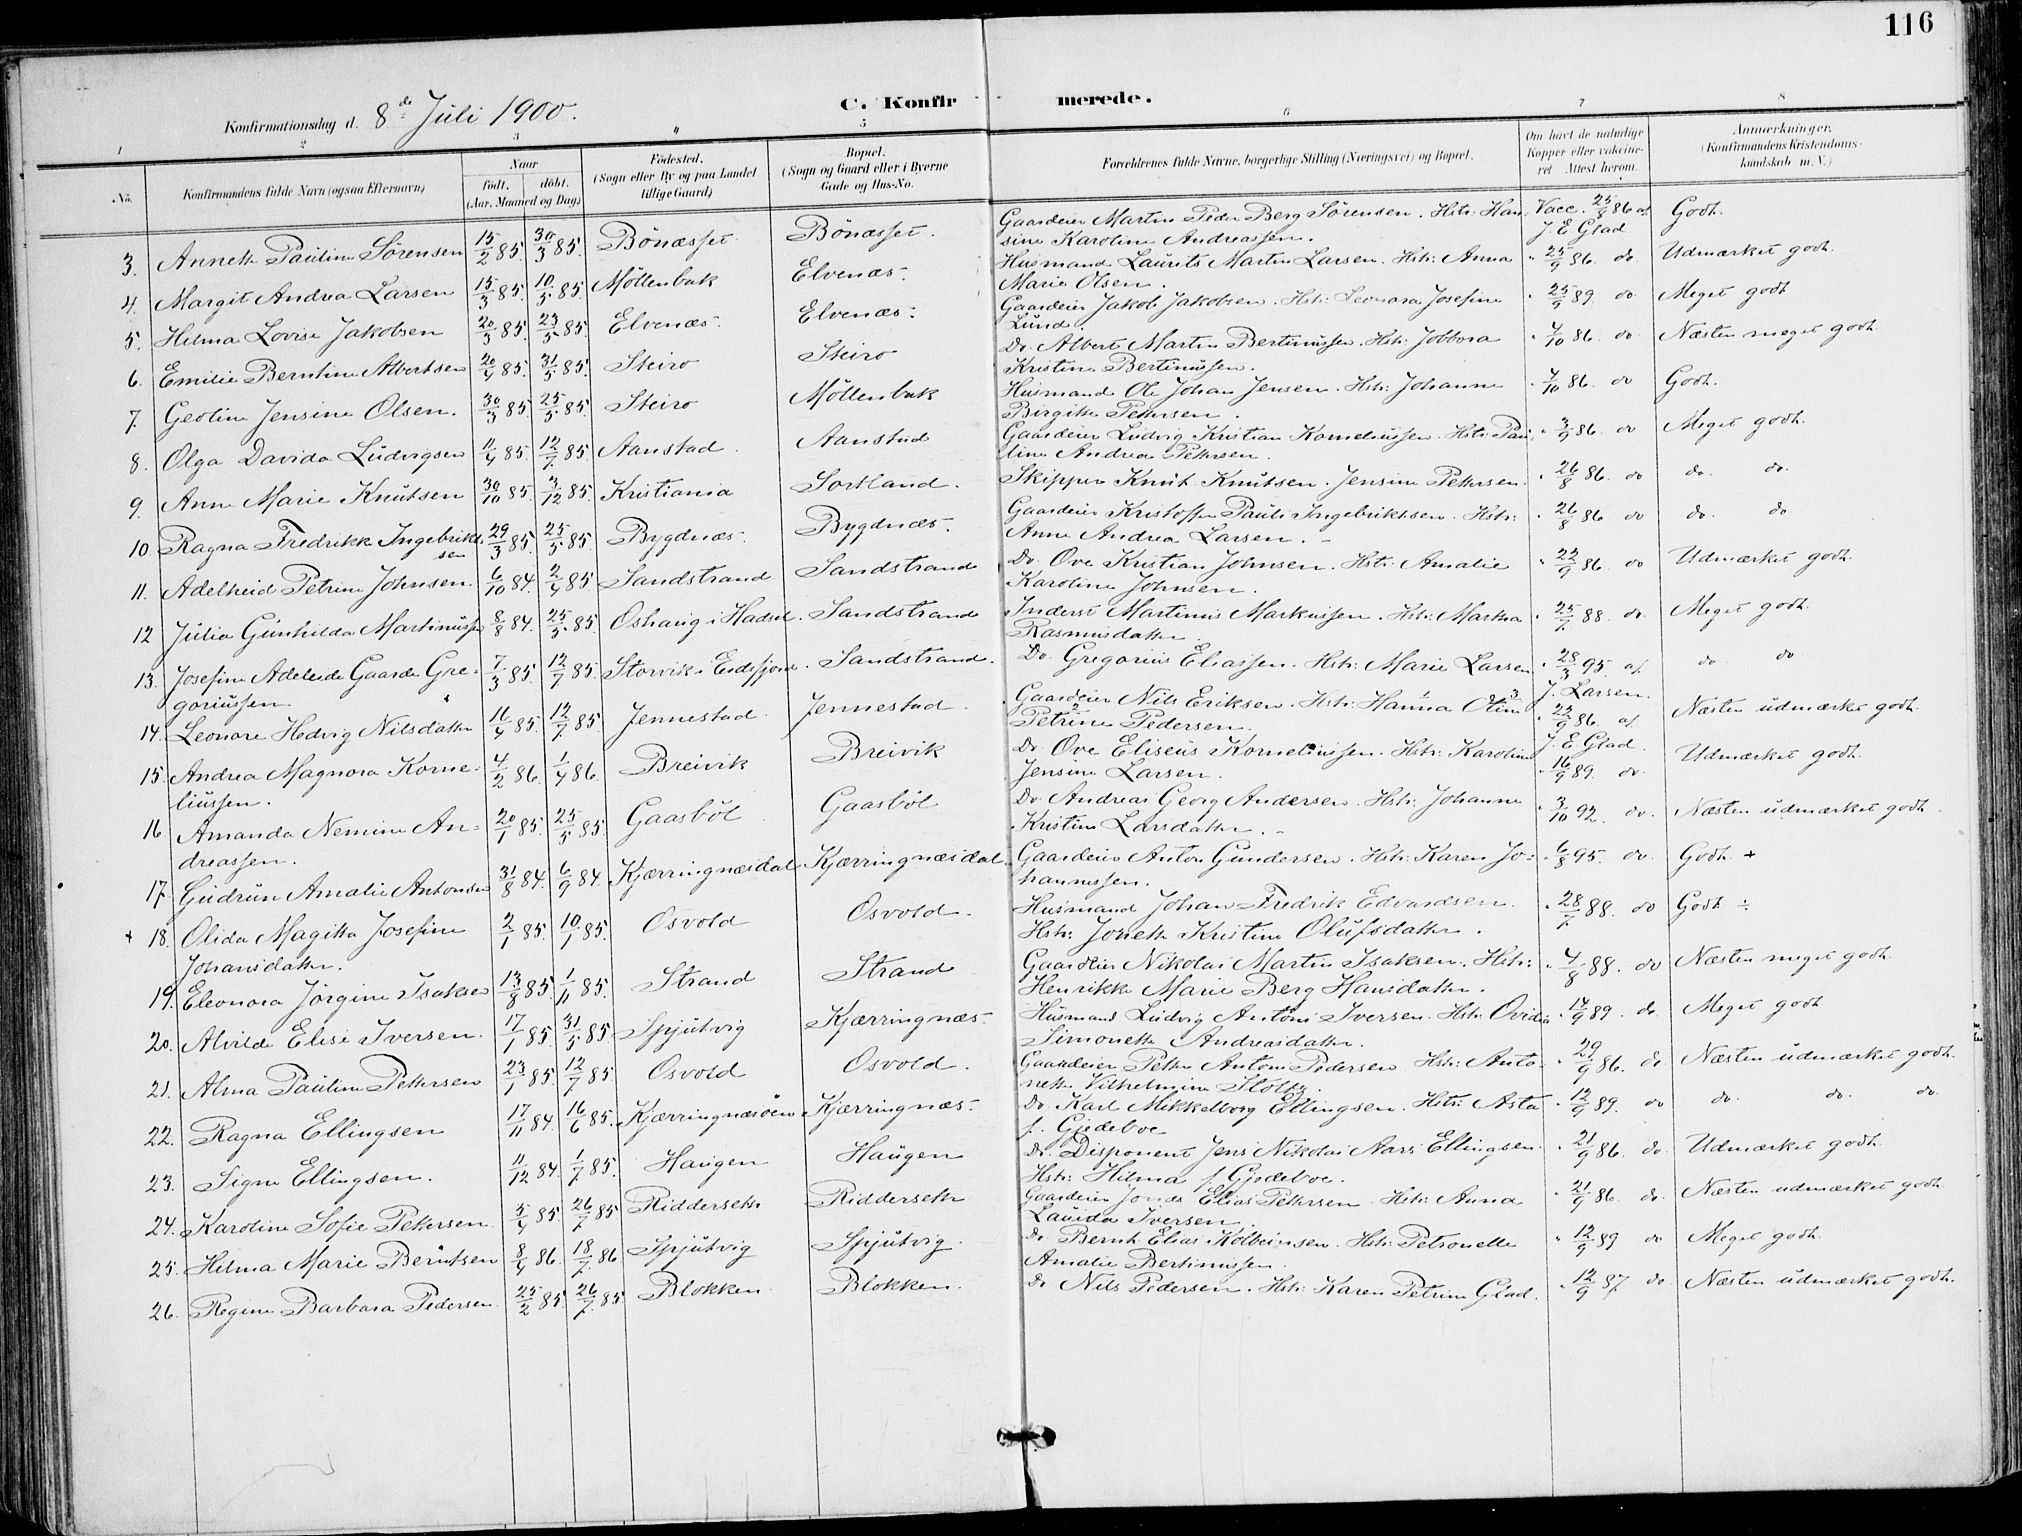 116
C. Konfirmerede.
Konfirmationsdag d. 8de Juli 1900.
1 2 3 4 5 6 7 8
No. Konfirmandens fulde Navn (ogsaa Efternavn) Naar født. døbt. (Aar, Maaned og Dag) Fødested. (Sogn eller By og paa Landet tillige Gaard) Bopæl. (Sogn og Gaard eller i Byerne Gade og Hus-No. Forældrenes fulde Navne, borgerlige Stilling (Næringsvei) og Bopæl. Om havt de naturlige Kopper eller vakcineret Attest herom. Anmærkninger. (Konfirmandens Kristendomskundskab m. V.)
3. Annette Pauline Sørensen 15/2 85. 30/3 85. Bönæsset Bönæsset. Gaardeier Martin Peder Berg Sörensen. Hstr: Han- Vacc. 25/8 86 af Godt.
sine Karoline Andreassen. J. E Glad
4. Margit Andrea Larsen 15/3 85. 10/5 85. Møllenbak Elvenæs. Husmand Laurits Martin Larsen. Hstr: Anna " 25/9 86. do Udmærket godt.
Marie Olsen.
5. Helma Lovise Jakobsen 20/3 85. 23/5 85. Elvenæs. Elvenæs. Gaardeier Jakob Jakobsen. Hstr: Leonora Josefine " 25/9 89 do Meget godt
Lund.
6. Emilie Berntine Albertsen 20/4 85. 31/5 85. Steiro Steiro Do. Albert Martin Bertinussen. Hstr: Jobbora " 4/10 86. do Næsten meget godt.
Kristine Bertinussen.
7. Geoline Jensine Olsen. 30/3 85. 25/5 85. Steiro Møllenbak Husmand Ole Johan Jensen. Hstr: Johanne " 4/10 86. do Godt.
Birgitte Pettersen.
8. Olga Davida Ludvigsen 11/4 85. 12/7 85. Aanstad. Aanstad Gaardeier Ludvig Kristian Korneliussen. Hstr: Pau- " 3/9 86. do Meget godt.
line Andrea Pettersen.
9. Anna Marie Knutsen 30/10 85. 3/12 85. Kristiania Sortland. Skipper Knut Knutsen. Jensine Pettersen. " 26/8 86. do do. do.
10. Ragna Fredrikke Ingebrikt- 29/3 85. 25/5 85. Bygdnæs. Bygdnæs. Gaardeier Kristoffer Pauli Ingebriktsen. Hstr: " 26/8 86 do do. do
sen Anne Andrea Larsen.
11. Adelheid Petrine Johnsen. 6/10 84. 2/4 85. Sandstrand Sandstrand Do. Ove Kristian Johnsen. Hstr: Amalie " 22/9 86 do Udmærket godt.
Karoline Johnsen.
12 Julia Gunhilda Martinussen 8/8 84. 25/5 85. i Hadsel. Sandstrand Inderst Martinus Markussen. Hstr: Martha " 25/7 88. do. Meget godt.
Rasmusdatter.
13. Josefine Adeleide Gaarde Gre- 7/3 85. 12/7 85. Storvik i Eidsfjord. Sandstrand. Do. Gregorius Eliassen. Hstr: Marie Larsen " 28/3 95. af do do
goriussen. J. Larsen.
14. Leonore Hedvig Nilsdatter 16/4 85. 12/7 85. Jennestad. Jennestad. Gaardeier Nils Eriksen. Hstr: Hanna Oline " 25/9 86. af Næsten udmærket godt.
Petrine Pedersen. J. E Glad.
15. Andrea Magnora Korne- 4/2 86. 1/4 86. Breivik Breivik Do Ove Eliseus Korneliussen. Hstr: Karoline Udmærket godt.
liussen. Jensine Larsen. " 16/9 89. do.
16. Amanda Nemine An- 20/1 85. 25/5 85. Gaasböl Gaasböl Do Andreas Georg Andersen. Hstr: Johanne " 3/10 92. do. Næsten udmærket godt.
dreassen. Kristine Larsdatter.
17. Gudrun Amalie Antonsen 31/8 84. 6/9 84. Kjærringnæsdal Kjærringnæsdal. Gaardeier Anton Gundersen. Hstr: Karen Jo- " 6/8 95. do. Godt. +
hannessen.
+ 18. Olida Magitta Josefine 2/1 85. 10/1 85. Osvold Osvold. Husmand Johan Fredrik Edvardsen. " 28/7 88. do Godt ÷
Johansdatter. Hstr: Jonette Kristine Olufsdatter.
19. Eleonora Jørgine Isaksen 13/8 85. 1/11 85. Strand Strand Gaardeier Nikolai Martin Isaksen. Hstr: " 4/8 88. do Næsten meget godt.
Henrikke Marie Berg Hansdatter.
20. Alvilde Elise Iversen. 17/1 85. 31/5 85. Spjutvig Kjærringnæs. Husmand Ludvig Antoni Iversen. Hstr: Ovidia " 14/9 89. do. Meget godt
Simonette Andreasdatter.
21. Alma Pauline Pettersen 23/1 85. 12/7 85. Osvold Osvold. Gaardeier Petter Anton Pedersen Hstr: Anto- " 29/9 86. do. Næsten udmærket godt.
nette Vilhelmine Stoltz.
22. Ragna Ellingsen 17/11 84. 16/6 85. Kjærringnæsöen Kjærringnæs. Do Karl Mikkelborg Ellingsen. Hstr: Asta " 12/9 89. do do. do. do.
f. Gjedeboe
23. Signe Ellingsen. 11/12 84. 1/7 85. Haugen Haugen Do. Disponent Jens Nikolai Aars Ellingsen. " 21/9 86. do. Udmærket godt.
Hstr: Hilma f Gjedeboe.
24. Karoline Sofie Pettersen. 5/4 85. 26/7 85. Riddersette Riddersette Gaardeier Jonas Elias Pettersen Hstr: Anna " 21/9 86. do. Næsten udmærket godt.
Lauida Iversen
25. Helma Marie Berntsen 8/4 86. 18/7 86. Spjutvig Spjutvig. Do Bernt Elias Kolbeinsen. Hstr: Petronelle " 12/9 89 do Meget godt.
Amalie Bertinussen.
26. Regine Barbara Pedersen. 25/2 85. 26/7 85 Blokken Blokken. Do Nils Pedersen. Hstr: Karen Petrine Glad. " 12/9 87. do Næsten udmærket godt.